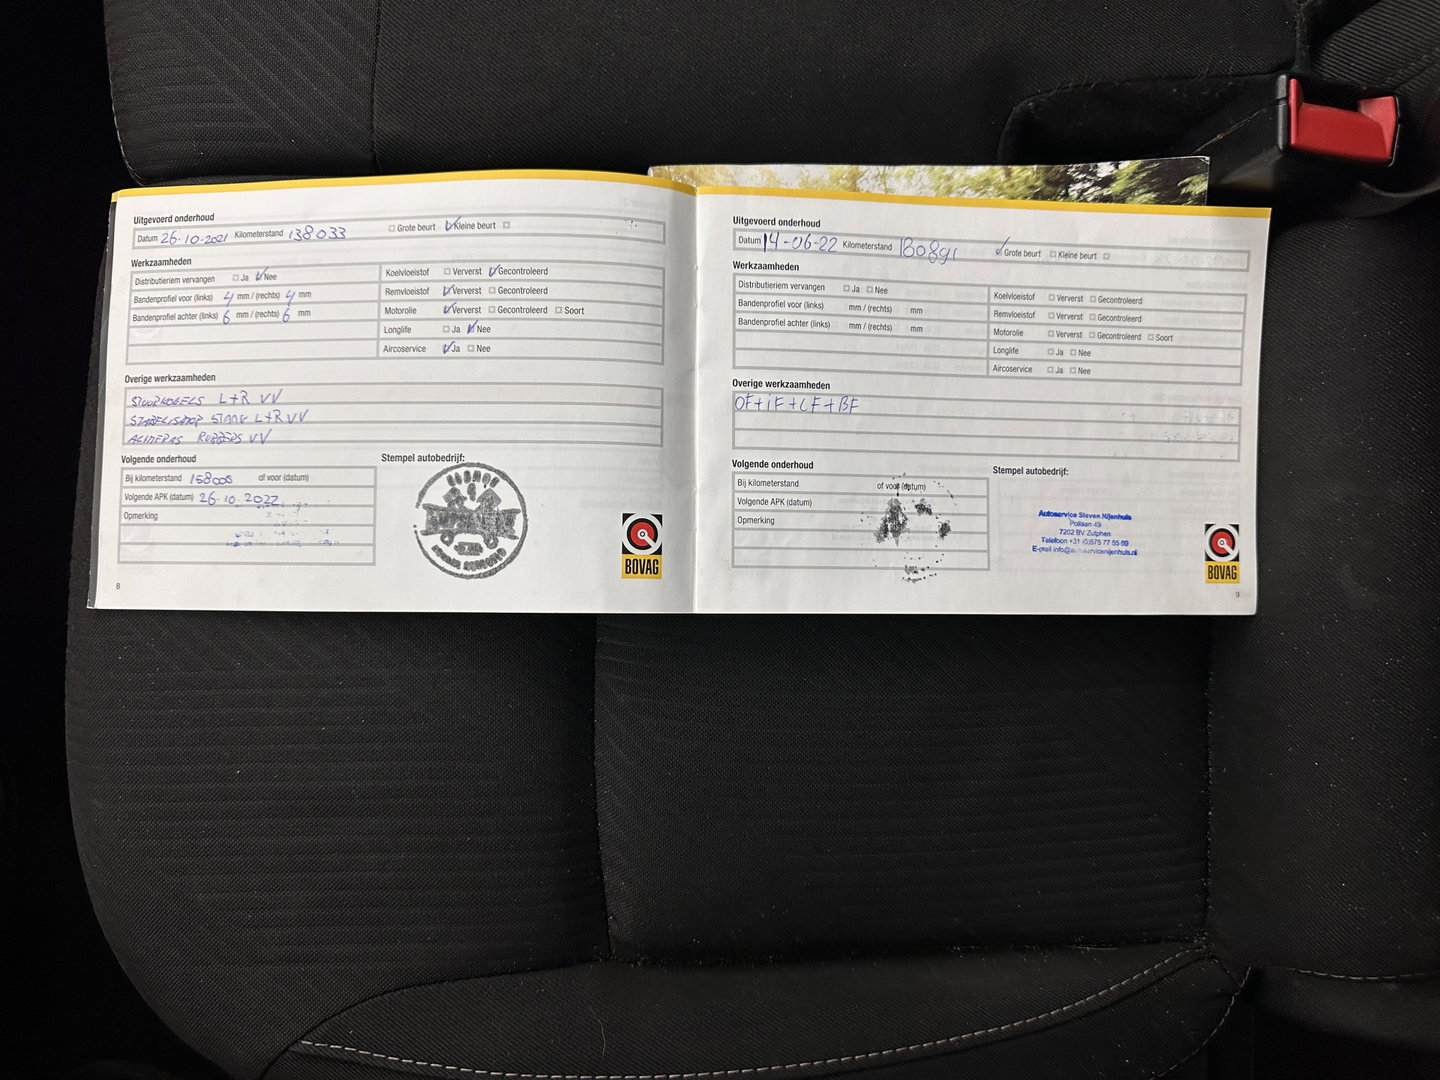 Uitgevoerd onderhoud
Datum 26-10-2021 Kilometerstand 138033 Grote beurt Kleine beurt
Werkzaamheden
Distributieriem vervangen Ja Nee
Bandenprofiel voor (links) 4 mm / (rechts) 4 mm
Bandenprofiel achter (links) 6 mm / (rechts) 6 mm
Koelvloeistof Ververst Gecontroleerd
Remvloeistof Ververst Gecontroleerd
Motorolie Ververst Gecontroleerd Soort
Longlife Ja Nee
Aircoservice Ja Nee
Overige werkzaamheden
STUURKOGELS L+R VV
STABELISATOR STANG L+R VV
RUBBERS VV
Volgende onderhoud
Bij kilometerstand 158000 of voor (datum)
Volgende APK (datum) 26-10-2022
Opmerking
Stempel autobedrijf:
BOVAG
8
Uitgevoerd onderhoud
Datum 14-06-22 Kilometerstand Grote beurt Kleine beurt
Werkzaamheden
Distributieriem vervangen Ja Nee
Bandenprofiel voor (links) mm / (rechts) mm
Bandenprofiel achter (links) mm / (rechts) mm
Koelvloeistof Ververst Gecontroleerd
Remvloeistof Ververst Gecontroleerd
Motorolie Ververst Gecontroleerd Soort
Longlife Ja Nee
Aircoservice Ja Nee
Overige werkzaamheden
OF+IF+LF+BF
Volgende onderhoud
Bij kilometerstand of voor (datum)
Volgende APK (datum)
Opmerking
Stempel autobedrijf:
Autoservice Steven Nijenhuis
Pollaan 49
7202 BV Zutphen
Telefoon +31 (0)575 77 55 69
E-mail info@autoservicenijenhuis.nl
BOVAG
9